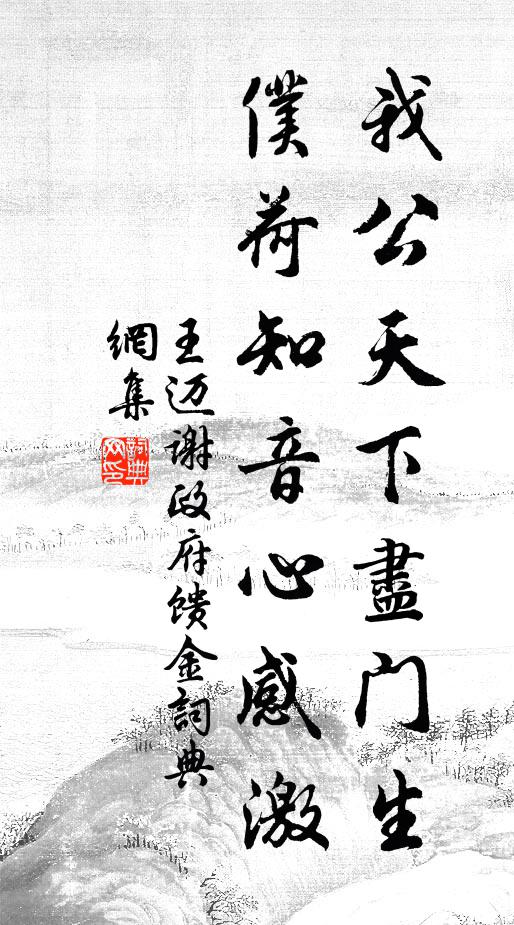 我公天下盡门生
僕荷知音心感激
王迈謝政府馈金詞典
網集